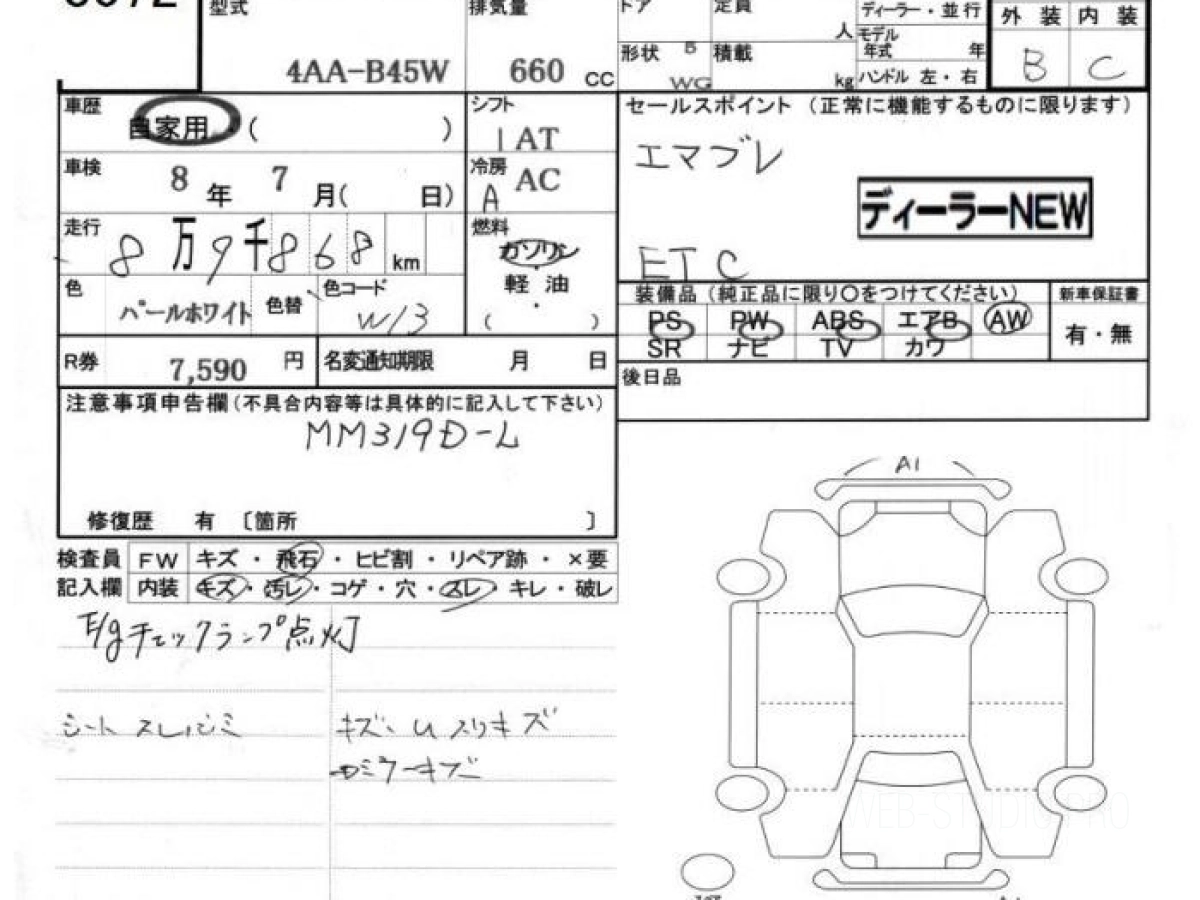 型式
4AA-B45W
排気量
660 cc
ドア
定員
人
形状 B WG
積載
kg
ディーラー・並行
モデル年式 年
ハンドル 左・右
外装 内装
B C
車歴
自家用・( )
シフト
IAT
車検
8年 7月( 日)
冷房
A AC
走行
8万9千868km
燃料
ガソリン
軽油
・
( )
色
パールホワイト
色替
色コード
W13
R券
7,590円
名変通知期限 月 日
セールスポイント(正常に機能するものに限ります)
エマブレ
ディーラーNEW
ETC
装備品(純正品に限り〇をつけてください)
PS PW ABS エアB AW
SR ナビ TV カワ
新車保証書
有・無
後日品
注意事項申告欄(不具合内容等は具体的に記入して下さい)
MM319D-L
修復歴 有〔箇所 〕
検査員記入欄
FW キズ・飛石・ヒビ割・リペア跡・×要
内装 キズ・汚レ・コゲ・穴・スレ・キレ・破レ
E/gチェックランプ点灯
シートスレ シミ
キズ、Uスリキズ
ロミラーキズ
A1
WEB-STUDIO.PRO